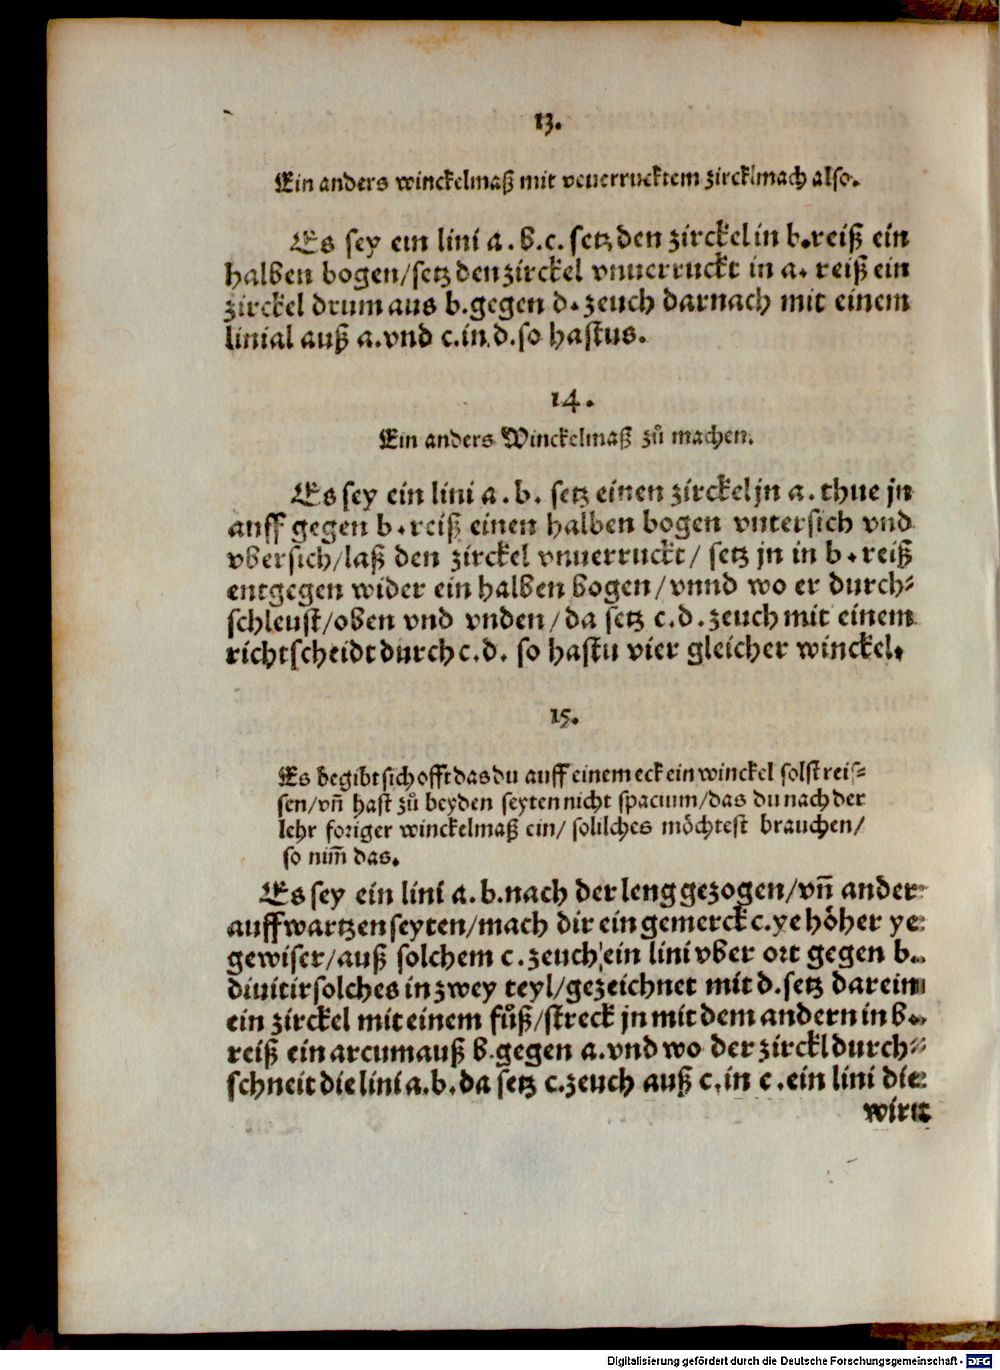 13.
Ein anders winckelmaß mit veuerrucktem zircklmach also.
Es sey ein lini a. b. c. setz den zirckel in b. reiß ein
halben bogen/setz den zirckel vnuerruckt in a. reiß ein
zirckel drum aus b. gegen d. zeuch darnach mit einem
linial auß a. vnd c. in d. so hastus.
14.
Ein anders Winckelmaß zů machen.
Es sey ein lini a. b. setz einen zirckel jn a. thue jn
auff gegen b. reiß einen halben bogen vntersich vnd
vbersich/laß den zirckel vnuerruckt/ setz jn in b. reiß
entgegen wider ein halben bogen/vnnd wo er durch⸗
schleust/oben vnd vnden/da setz c. d. zeuch mit einem
richtscheidt durch c. d. so hastu vier gleicher winckel.
15.
Es begibt sich offt das du auff einem eck ein winckel solst reis⸗
sen/vñ hast zů beyden seyten nicht spacium/das du nach der
lehr foriger winckelmaß ein/ solilches möchtest brauchen/
so nim̃ das.
Es sey ein lini a. b. nach der leng gezogen/vñ ander
auffwartzen seyten/mach dir ein gemerck c. ye höher ye
gewiser/auß solchem c. zeuch ein lini vber ort gegen b.
diuitir solches in zwey teyl/gezeichnet mit d. setz darein
ein zirckel mit einem fůß/streck jn mit dem andern in b.
reiß ein arcum auß b. gegen a. vnd wo der zirckl durch⸗
schneit die lini a. b. da setz c. zeuch auß c. in e. ein lini die
wirt
Digitalisierung gefördert durch die Deutsche Forschungsgemeinschaft - DFG